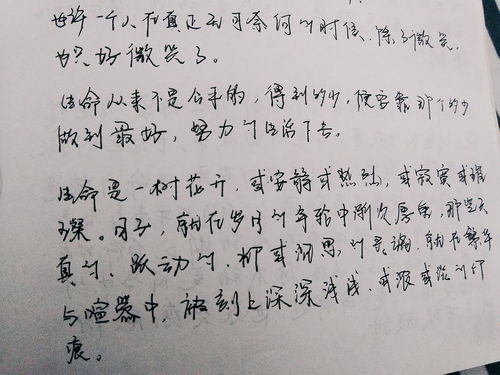 也许一个人在真正无可奈何的时候，除了微笑，
也只好微笑了。
生命从来不是公平的，得到多少，便要靠那个多少
做到最好，努力的生活下去。
生命是一树花开，或安静或热烈，或寂寞或璀
璨。日子，就在岁月的年轮中渐次厚重，那些天
真的、跃动的、抑或沉思的灵魂，就在繁华
与喧嚣中，被刻上深深浅浅、或浓或淡的印
痕。